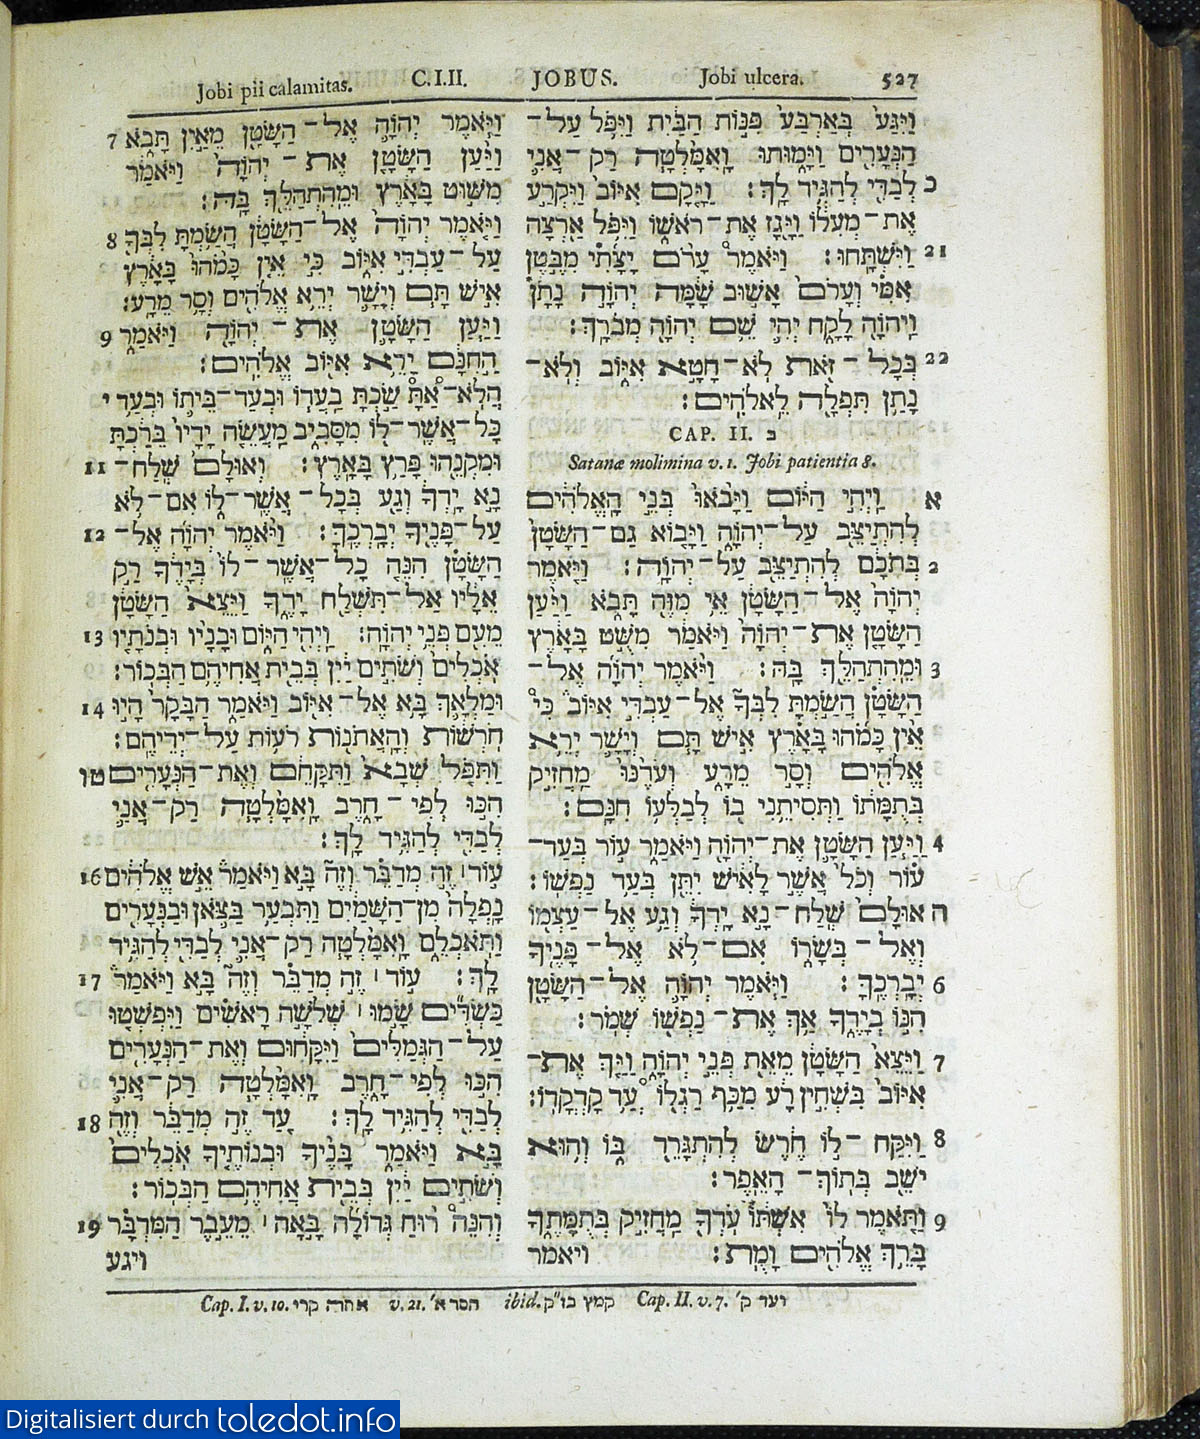 Jobi pii calamitas. C.I.II. JOBUS. Jobi ulcera. 527
7 וַיֹּאמֶר יְהוָה אֶל־הַשָּׂטָן מֵאַיִן תָּבֹא
וַיַּעַן הַשָּׂטָן אֶת־יְהוָה וַיֹּאמַר
מִשּׁוּט בָּאָרֶץ וּמֵהִתְהַלֵּךְ בָּהּ׃
8 וַיֹּאמֶר יְהוָה אֶל־הַשָּׂטָן הֲשַׂמְתָּ לִבְּךָ
עַל־עַבְדִּי אִיּוֹב כִּי אֵין כָּמֹהוּ בָּאָרֶץ
אִישׁ תָּם וְיָשָׁר יְרֵא אֱלֹהִים וְסָר מֵרָע׃
9 וַיַּעַן הַשָּׂטָן אֶת־יְהוָה וַיֹּאמַר
הַחִנָּם יָרֵא אִיּוֹב אֱלֹהִים׃
י הֲלֹא־אַתָּ שַׂכְתָּ בַעֲדוֹ וּבְעַד־בֵּיתוֹ וּבְעַד
כָּל־אֲשֶׁר־לוֹ מִסָּבִיב מַעֲשֵׂה יָדָיו בֵּרַכְתָּ
11 וּמִקְנֵהוּ פָּרַץ בָּאָרֶץ׃ וְאוּלָם שְׁלַח־
נָא יָדְךָ וְגַע בְּכָל־אֲשֶׁר־לוֹ אִם־לֹא
12 עַל־פָּנֶיךָ יְבָרֲכֶךָּ׃ וַיֹּאמֶר יְהוָה אֶל־
הַשָּׂטָן הִנֵּה כָל־אֲשֶׁר־לוֹ בְּיָדֶךָ רַק
אֵלָיו אַל־תִּשְׁלַח יָדֶךָ וַיֵּצֵא הַשָּׂטָן
13 מֵעִם פְּנֵי יְהוָה׃ וַיְהִי הַיּוֹם וּבָנָיו וּבְנֹתָיו
אֹכְלִים וְשֹׁתִים יַיִן בְּבֵית אֲחִיהֶם הַבְּכוֹר׃
14 וּמַלְאָךְ בָּא אֶל־אִיּוֹב וַיֹּאמַר הַבָּקָר הָיוּ
חֹרְשׁוֹת וְהָאֲתֹנוֹת רֹעוֹת עַל־יְדֵיהֶם׃
טו וַתִּפֹּל שְׁבָא וַתִּקָּחֵם וְאֶת־הַנְּעָרִים
הִכּוּ לְפִי־חָרֶב וָאִמָּלְטָה רַק־אֲנִי
לְבַדִּי לְהַגִּיד לָךְ׃
16 עוֹד׀ זֶה מְדַבֵּר וְזֶה בָּא וַיֹּאמַר אֵשׁ אֱלֹהִים
נָפְלָה מִן־הַשָּׁמַיִם וַתִּבְעַר בַּצֹּאן וּבַנְּעָרִים
וַתֹּאכְלֵם וָאִמָּלְטָה רַק־אֲנִי לְבַדִּי לְהַגִּיד
17 לָךְ׃ עוֹד׀ זֶה מְדַבֵּר וְזֶה בָּא וַיֹּאמַר
כַּשְׂדִּים שָׂמוּ׀ שְׁלֹשָׁה רָאשִׁים וַיִּפְשְׁטוּ
עַל־הַגְּמַלִּים וַיִּקָּחוּם וְאֶת־הַנְּעָרִים
הִכּוּ לְפִי־חָרֶב וָאִמָּלְטָה רַק־אֲנִי
18 לְבַדִּי לְהַגִּיד לָךְ׃ עַד זֶה מְדַבֵּר וְזֶה
בָּא וַיֹּאמַר בָּנֶיךָ וּבְנוֹתֶיךָ אֹכְלִים
וְשֹׁתִים יַיִן בְּבֵית אֲחִיהֶם הַבְּכוֹר׃
19 וְהִנֵּה רוּחַ גְּדוֹלָה בָּאָה׀ מֵעֵבֶר הַמִּדְבָּר
ויגע
וַיִּגַּע בְּאַרְבַּע פִּנּוֹת הַבַּיִת וַיִּפֹּל עַל־
הַנְּעָרִים וַיָּמוּתוּ וָאִמָּלְטָה רַק־אֲנִי
כ לְבַדִּי לְהַגִּיד לָךְ׃ וַיָּקָם אִיּוֹב וַיִּקְרַע
אֶת־מְעִלוֹ וַיָּגָז אֶת־רֹאשׁוֹ וַיִּפֹּל אַרְצָה
21 וַיִּשְׁתָּחוּ׃ וַיֹּאמֶר עָרֹם יָצָתִי מִבֶּטֶן
אִמִּי וְעָרֹם אָשׁוּב שָׁמָּה יְהוָה נָתָן
וַיהוָה לָקָח יְהִי שֵׁם יְהוָה מְבֹרָךְ׃
22 בְּכָל־זֹאת לֹא־חָטָא אִיּוֹב וְלֹא־
נָתַן תִּפְלָה לֵאלֹהִים׃
CAP. II. ב
Satanæ molimina v. 1. Jobi patientia 8.
א וַיְהִי הַיּוֹם וַיָּבֹאוּ בְּנֵי הָאֱלֹהִים
לְהִתְיַצֵּב עַל־יְהוָה וַיָּבוֹא גַם־הַשָּׂטָן
2 בְּתֹכָם לְהִתְיַצֵּב עַל־יְהוָה׃ וַיֹּאמֶר
יְהוָה אֶל־הַשָּׂטָן אֵי מִזֶּה תָּבֹא וַיַּעַן
הַשָּׂטָן אֶת־יְהוָה וַיֹּאמַר מִשֻּׁט בָּאָרֶץ
3 וּמֵהִתְהַלֵּךְ בָּהּ׃ וַיֹּאמֶר יְהוָה אֶל־
הַשָּׂטָן הֲשַׂמְתָּ לִבְּךָ אֶל־עַבְדִּי אִיּוֹב כִּי
אֵין כָּמֹהוּ בָּאָרֶץ אִישׁ תָּם וְיָשָׁר יְרֵא
אֱלֹהִים וְסָר מֵרָע וְעֹדֶנּוּ מַחֲזִיק
בְּתֻמָּתוֹ וַתְּסִיתֵנִי בוֹ לְבַלְּעוֹ חִנָּם׃
4 וַיַּעַן הַשָּׂטָן אֶת־יְהוָה וַיֹּאמַר עוֹר בְּעַד־
עוֹר וְכֹל אֲשֶׁר לָאִישׁ יִתֵּן בְּעַד נַפְשׁוֹ׃
ה אוּלָם שְׁלַח־נָא יָדְךָ וְגַע אֶל־עַצְמוֹ
וְאֶל־בְּשָׂרוֹ אִם־לֹא אֶל־פָּנֶיךָ
6 יְבָרֲכֶךָּ׃ וַיֹּאמֶר יְהוָה אֶל־הַשָּׂטָן
הִנּוֹ בְיָדֶךָ אַךְ אֶת־נַפְשׁוֹ שְׁמֹר׃
7 וַיֵּצֵא הַשָּׂטָן מֵאֵת פְּנֵי יְהוָה וַיַּךְ אֶת־
אִיּוֹב בִּשְׁחִין רָע מִכַּף רַגְלוֹ עַד קָדְקֳדוֹ׃
8 וַיִּקַּח־לוֹ חֶרֶשׂ לְהִתְגָּרֵד בּוֹ וְהוּא
יֹשֵׁב בְּתוֹךְ־הָאֵפֶר׃
9 וַתֹּאמֶר לוֹ אִשְׁתּוֹ עֹדְךָ מַחֲזִיק בְּתֻמָּתֶךָ
בָּרֵךְ אֱלֹהִים וָמֻת׃ ויאמר
Cap. I. v. 10. אתה קרי v. 21. חסר א׳ ibid. קמץ בז״ק Cap. II. v. 7. ועד ק׳
Digitalisiert durch toledot.info